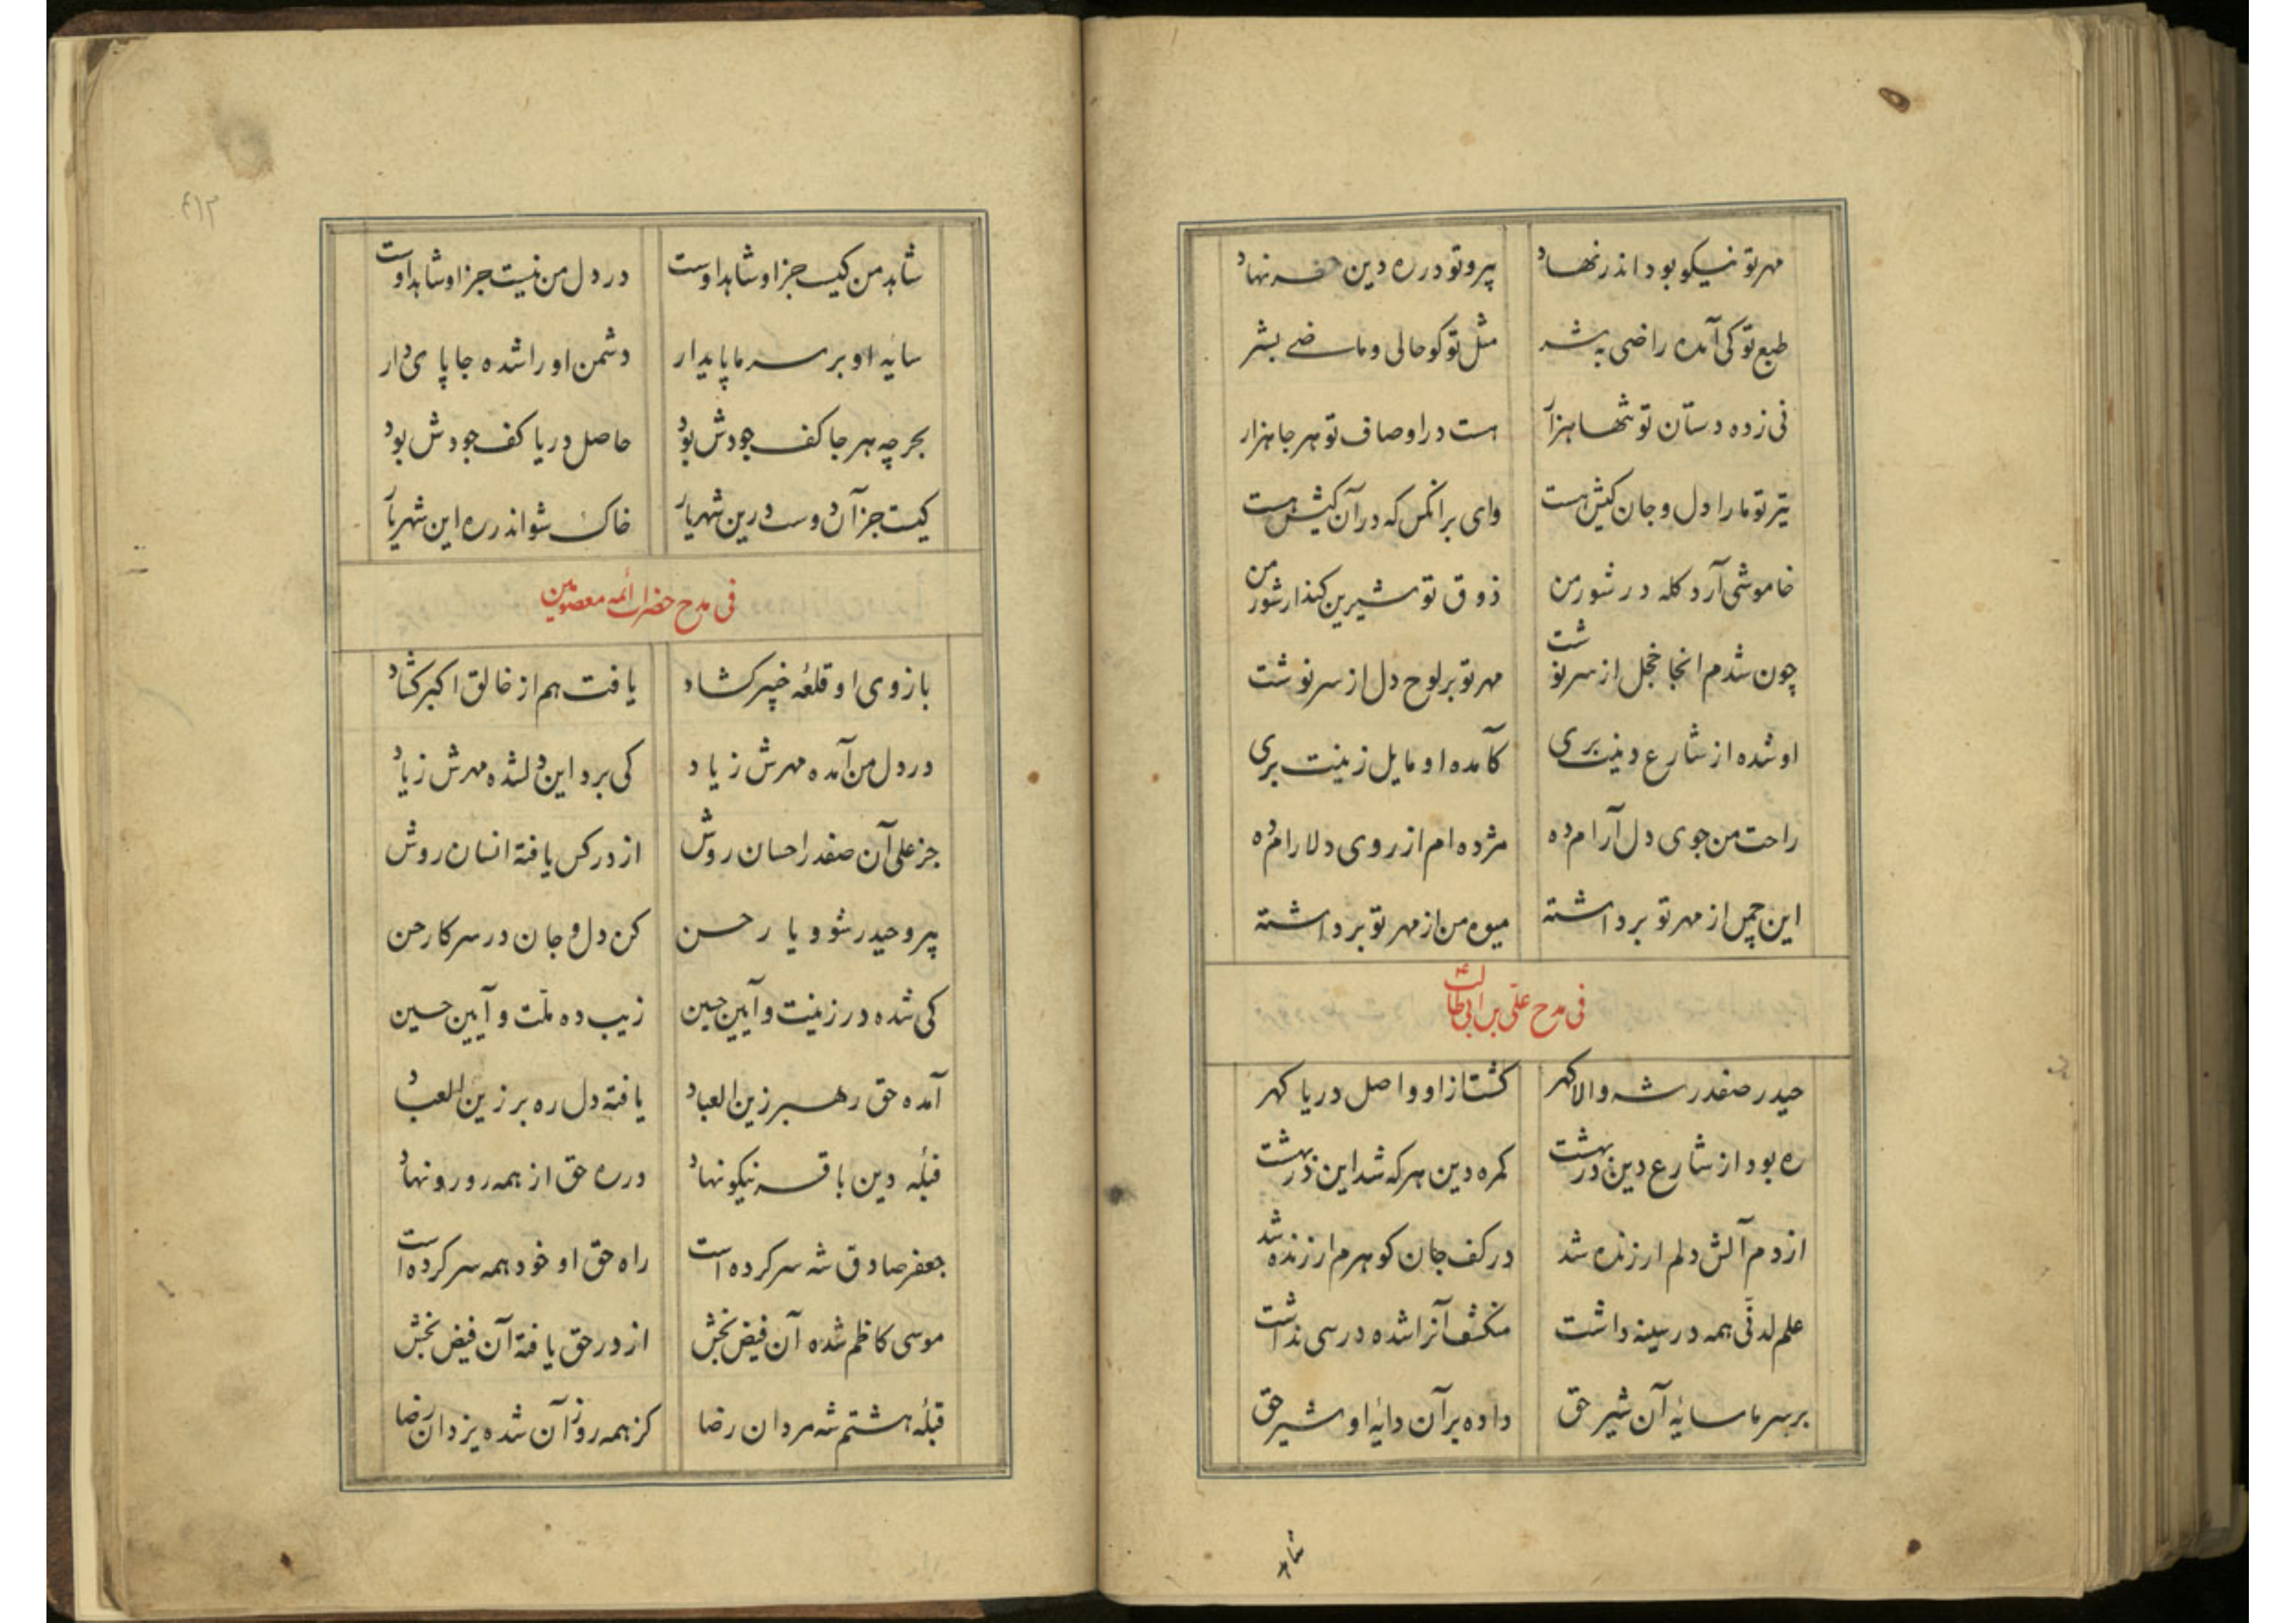 مهر تو نیکو بود اندر نهاد پیرو تو در ره دین نهاد
طبع تو کی آمده راضی به شر مثل تو کو حالی و ماضی بشر
نی زده دستان تو تنها هزار هست در اوصاف تو هر جا هزار
تیر تو ما را دل و جان کیش هست وای بر آنکس که در آن کیش هست
خاموشی آرد کله در شور من ذوق تو شیرین کند ار شور من
چون شدم انجا خجل از سرنوشت مهر تو بر لوح دل از سر نوشت
او شده از شارع دینت بری کآمده او مایل زینت بری
راحت من جوی دل آرام ده مژده ام از روی دلارام ده
این چمن از مهر تو برداشته میوه من از مهر تو برداشته
فی مدح علی بن ابی طالب ع
حیدر صفدر شه والا گهر گشت از او واصل دریا گهر
ره بود از شارع دین در بهشت کمره دین هر که شد این در بهشت
از دم آلش دلم ارزنده شد در کف جان گوهرم ارزنده شد
علم لدنی همه در سینه داشت منکشف آنرا شده درسی نداشت
بر سر ما سایهٔ آن شیر حق داده بر آن دایهٔ او شیر حق
شاهد
۴۱۲
شاهد من کیست جز او شاهد اوست در دل من نیست جز او شاهد اوست
سایه او بر سر ما پایدار دشمن او را شده جا پای دار
بحر چه هر جا کف جودش بود حاصل دریا کف جودش بود
کیست جز آن دوست درین شهریار خاک شو اندر ره این شهریار
فی مدح حضرات ائمه معصومین
بازوی او قلعهٔ خیبر گشاد یافت هم از خالق اکبر گشاد
در دل من آمده مهرش زیاد کی برد این دلشده مهرش زیاد
جز علی آن صفدر احسان روش از در کس یافته انسان روش
پیرو حیدر شو و یار حسن کن دل و جان در سر کار حسن
کی شده در زینت و آیین حسین زیب ده ملت و آیین حسین
آمده حق رهبر زین العباد یافته دل ره بر زین العباد
قبلهٔ دین باقر نیکو نهاد در ره حق از همه رو رو نهاد
جعفر صادق شه سرکرده است راه حق او خود همه سر کرده است
موسی کاظم شده آن فیض بخش از در حق یافته آن فیض بخش
قبلهٔ هشتم شه مردان رضا کز همه رو زآن شده یزدان رضا